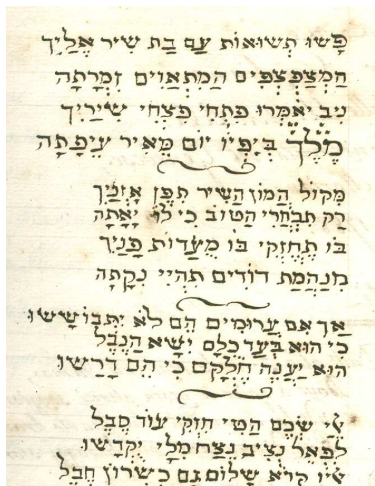 פָּשׁוּ תְּשׁוּאוֹת עַם בַּת שִׁיר אֵלַיִךְ
הַמְצַפְצְפִים הַמִּתְאַוִּים זִמְרָתָהּ
נִיב יֹאמְרוּ פִּתְחִי פִּצְחִי שִׁירַיִךְ
מֶלֶךְ בְּיָפְיוֹ יוֹם מֵאִיר עֵיפָתָה
מִקּוֹל הֲמוֹן הַשִּׁיר תִּפֶן אָזְנַיִךְ
רַק תִּבְחֲרִי הַטּוֹב כִּי לוֹ יָאָתָה
בּוֹ תֶּחֶזְקִי בּוֹ מֻעָדוֹת פָּנַיִךְ
מִנֶּהֱמַת דּוֹדִים תְּהִיִי נִקָּתָה
אַךְ אִם עֲרוּמִים הֵם לֹא יִתְבּוֹשָׁשׁוּ
כִּי הוּא בְּעַד כֻּלָּם יִשָּׂא הַנֵּבֶל
הוּא יַעֲנֶה חֶלְקָם כִּי הֵם דָּרָשׁוּ
שִׁכְמֵּם הַטִּי חִזְקִי עוֹד סֵבֶל
לִפְאֵר נְצִיב נֶצַח מִלַּי יֻקְדָּשׁוּ
קִרְא שָׁלוֹם גַּם כִּשְׁרוֹן חֶבֶל